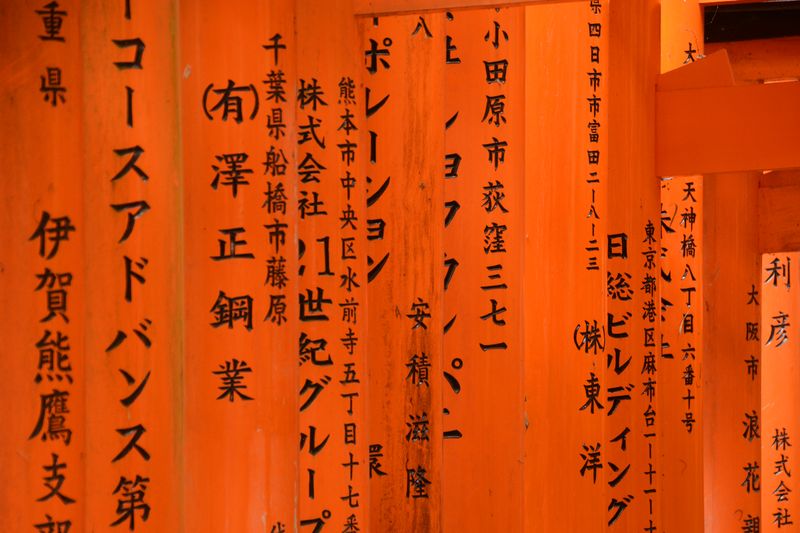 利彦
株式会社
大阪市浪花
天神橋八丁目六番十号
大
株式会社
東京都港区麻布台一ー十一ー十
日総ビルディング
県四日市市富田二ー八ー二三
(株)東洋
小田原市荻窪三七一
八
安積滋隆
ポレーション
環
熊本市中央区水前寺五丁目十七番
株式会社21世紀グループ
千葉県船橋市藤原
(有)澤正鋼業
ーコースアドバンス第
重県
伊賀熊鷹支部